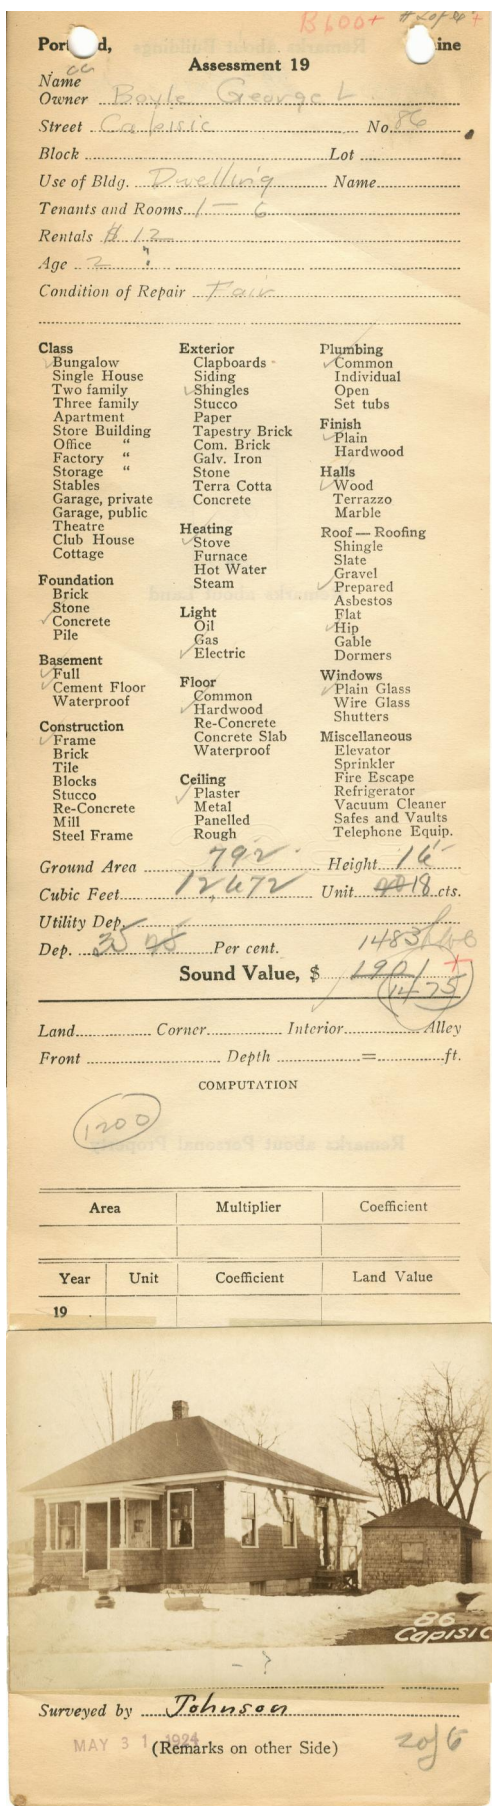 B600+ # 2 of 6 +
Port d, ine
Assessment 19
Name
Owner Boyle George L
Street Capisic No. 86
Block Lot
Use of Bldg. Dwelling Name
Tenants and Rooms 1 — 6
Rentals $ 12
Age 2
Condition of Repair Fair
Class
Bungalow
Single House
Two family
Three family
Apartment
Store Building
Office "
Factory "
Storage "
Stables
Garage, private
Garage, public
Theatre
Club House
Cottage
Foundation
Brick
Stone
Concrete
Pile
Basement
Full
Cement Floor
Waterproof
Construction
Frame
Brick
Tile
Blocks
Stucco
Re-Concrete
Mill
Steel Frame
Exterior
Clapboards
Siding
Shingles
Stucco
Paper
Tapestry Brick
Com. Brick
Galv. Iron
Stone
Terra Cotta
Concrete
Heating
Stove
Furnace
Hot Water
Steam
Light
Oil
Gas
Electric
Floor
Common
Hardwood
Re-Concrete
Concrete Slab
Waterproof
Ceiling
Plaster
Metal
Panelled
Rough
Plumbing
Common
Individual
Open
Set tubs
Finish
Plain
Hardwood
Halls
Wood
Terrazzo
Marble
Roof — Roofing
Shingle
Slate
Gravel
Prepared
Asbestos
Flat
Hip
Gable
Dormers
Windows
Plain Glass
Wire Glass
Shutters
Miscellaneous
Elevator
Sprinkler
Fire Escape
Refrigerator
Vacuum Cleaner
Safes and Vaults
Telephone Equip.
Ground Area 792 Height 16
Cubic Feet 12,672 Unit 18 cts.
Utility Dep.
Dep. 35 Per cent. 1483
Sound Value, $ 1901 +
1475
Land Corner Interior Alley
Front Depth = ft.
COMPUTATION
1200
Area Multiplier Coefficient
Year Unit Coefficient Land Value
19
86
Capisic
- ?
Surveyed by Johnson
MAY 31 1924
(Remarks on other Side)
2 of 6